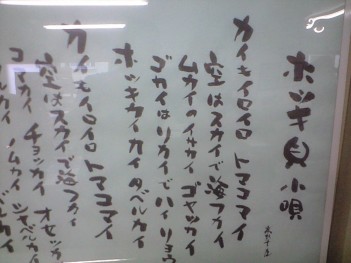 ホッキ貝小唄
カイもイロイロ トマコマイ
空はスカイで海フカイ
ムカイのイサカイ ゴヤッカイ
ゴカイはリカイでハイリョウ
ホッキカイカイ タベルカイ
カイもイロイロ トマコマイ
空はスカイで海フカイ
チョッカイ オセッカ
ムカイ シャベルカ